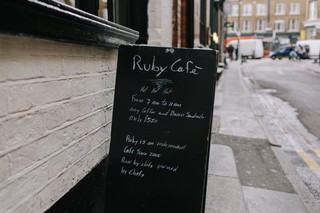 Ruby Café
Hot Hot Hot
From 7 am to 11 am
any Coffee and Bacon Sandwich
Only
Ruby is an independent
Café Since 2006
Run by chefs owned
by Chefs